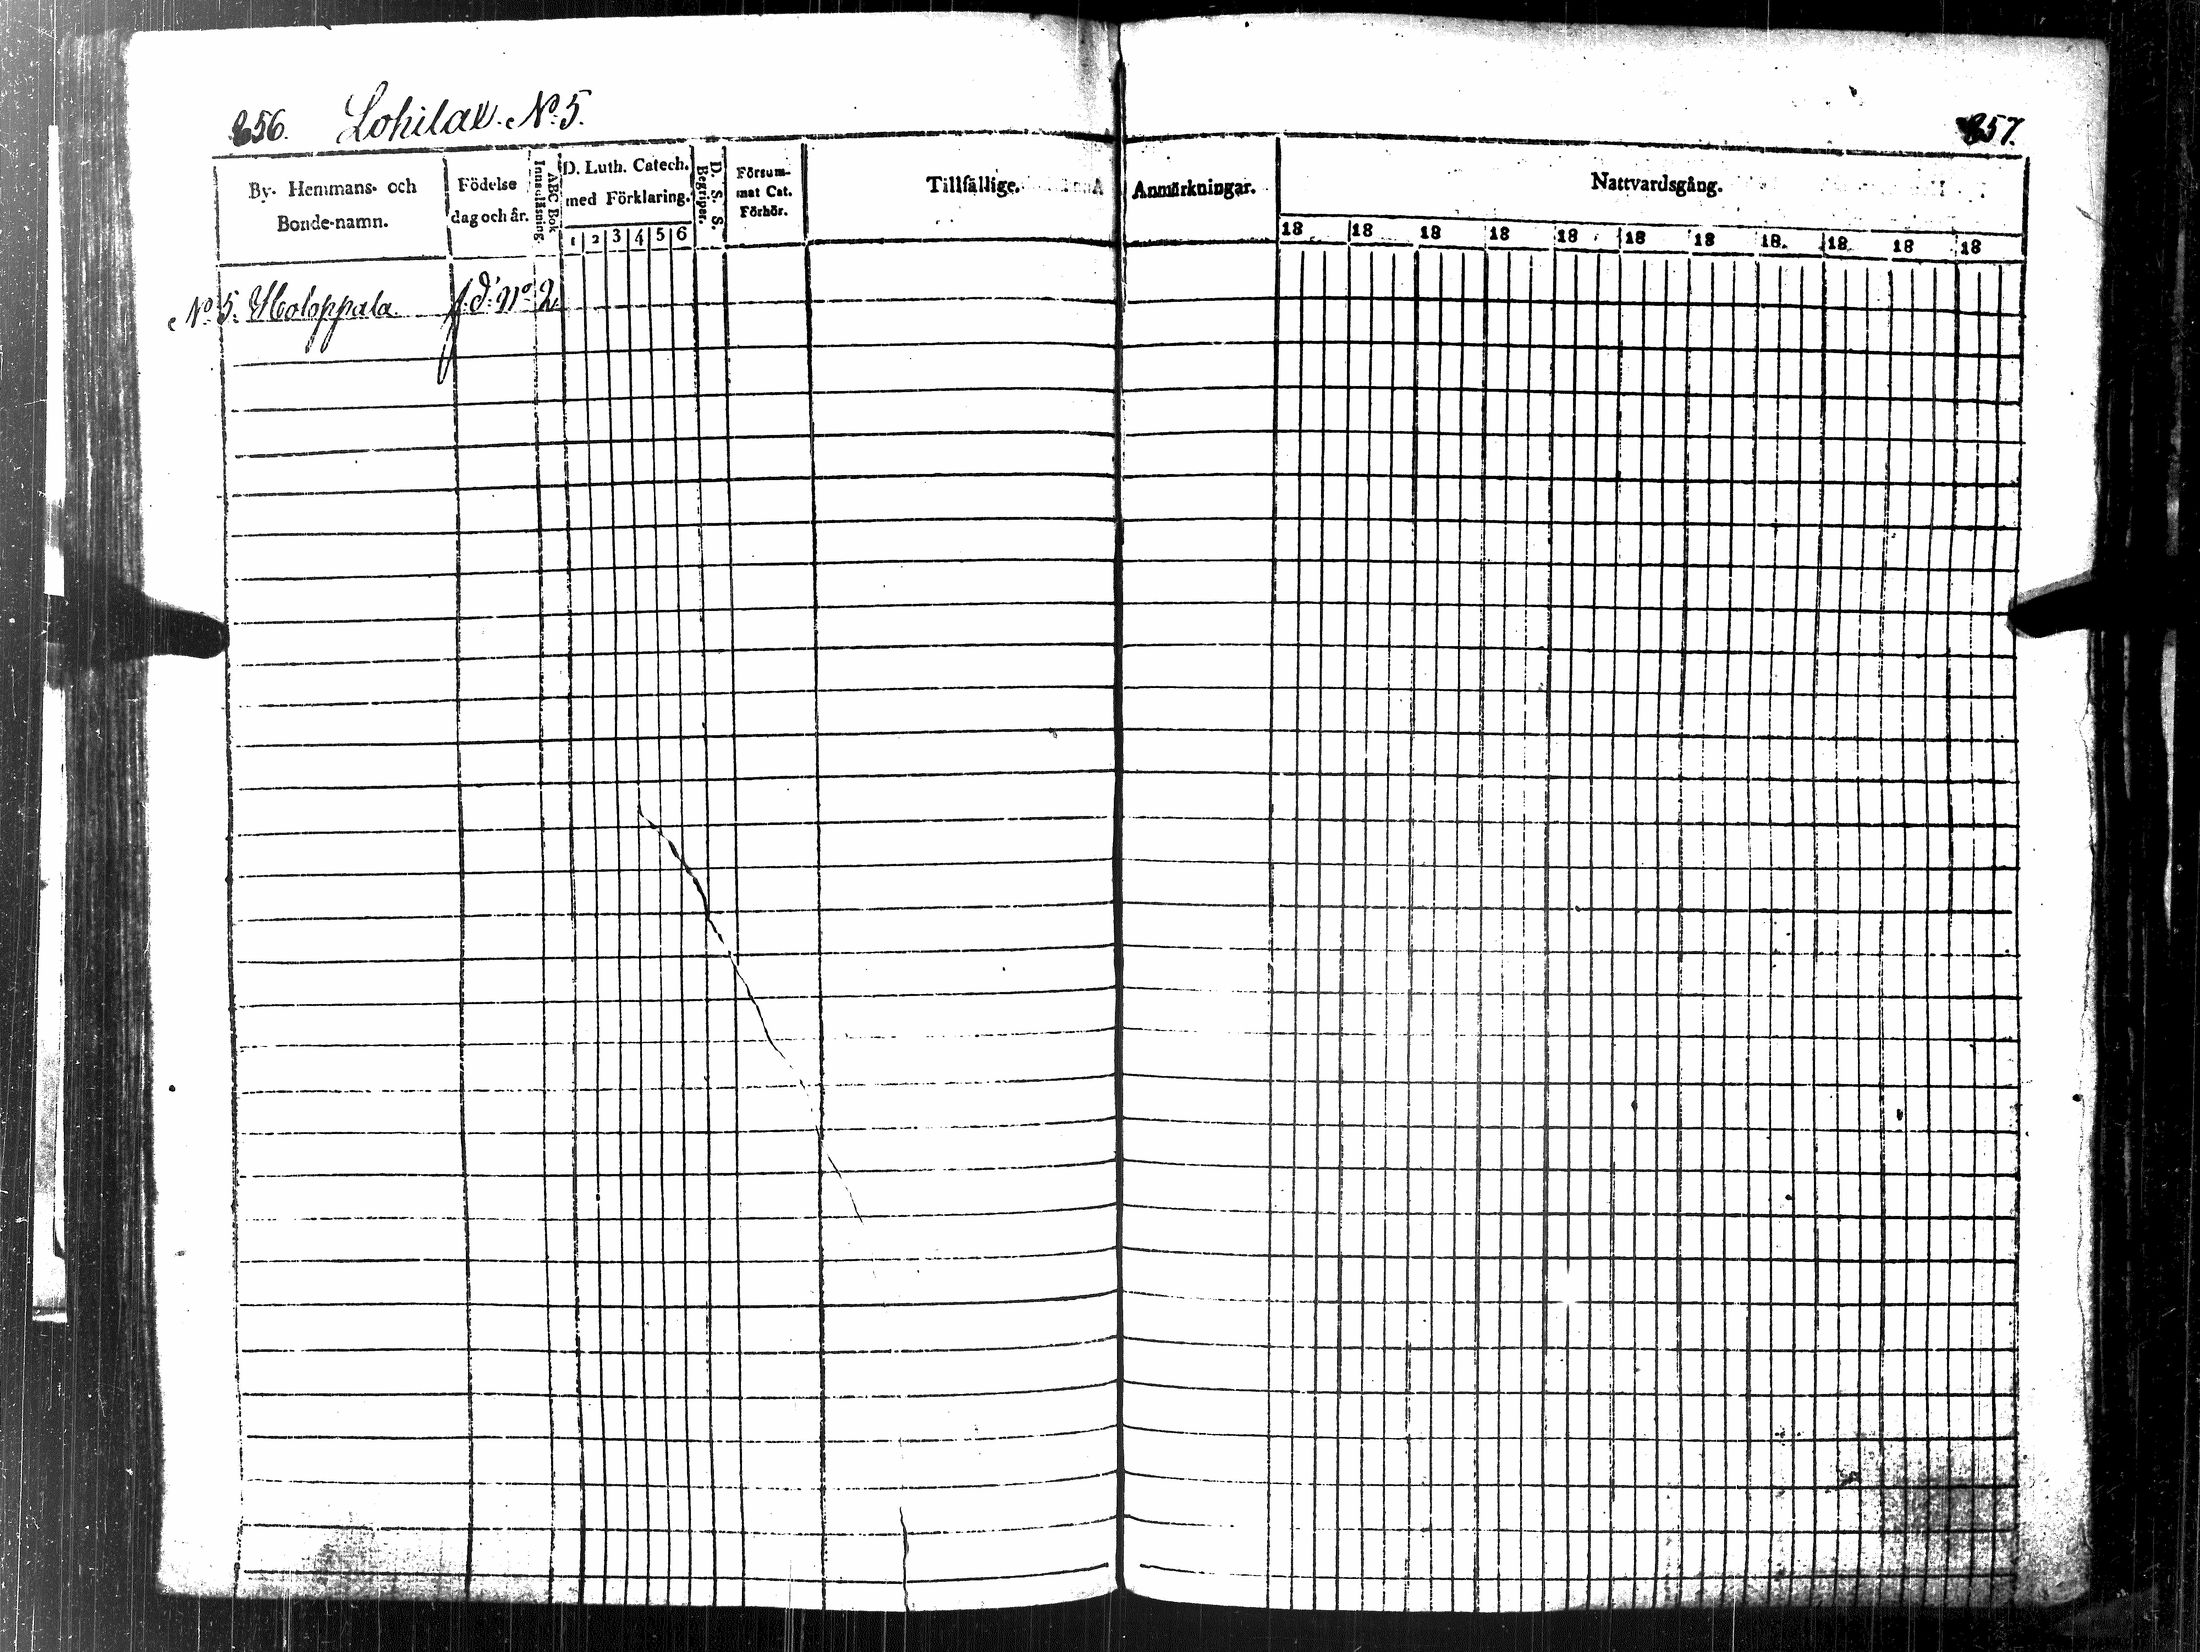 856. Lohilax. No. 5.
857.
By- Hemmans- och
Bonde-namn.
Födelse
dag och år.
ABC Bok
Innanläsning.
D. Luth. Catech.
med Förklaring.
1 2 3 4 5 6
D. S. S.
Begriper.
Försum-
mat Cat.
Förhör.
Tillfällige.
Anmärkningar.
Nattvardsgång.
18 18 18 18 18 18 18 18. 18. 18 18
No. 5. Holoppala